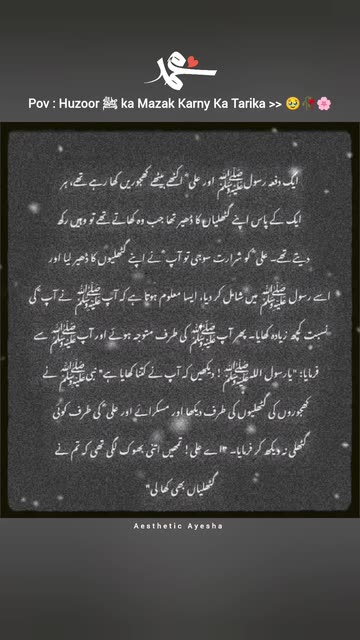 محمد
Pov : Huzoor ﷺ ka Mazak Karny Ka Tarika >> 🥹🥀🌸
ایک دفعہ رسولﷺ اور علیؓ اکٹھے بیٹھے کھجوریں کھا رہے تھے، ہر
ایک کے پاس اپنے گٹھلیاں کا ڈھیر تھا جب وہ کھاتے تھے تو وہیں رکھ
دیتے تھے۔ علیؓ کو شرارت سوجی تو آپؓ نے اپنے گٹھلیوں کا ڈھیر لیا اور
اسے رسولﷺ میں شامل کر دیا، ایسا معلوم ہوتا ہے کہ آپﷺ نے آپؓ کی
نسبت کچھ زیادہ کھایا۔ پھر آپؓ آپﷺ کی طرف متوجہ ہوئے اور آپﷺ سے
فرمایا: "یارسول اللہﷺ! دیکھیں کہ آپ نے کتنا کھایا ہے" نبیﷺ نے
کھجوروں کی گٹھلیوں کی طرف دیکھا اور مسکرائے اور علیؓ کی طرف کوئی
گٹھلی نہ دیکھ کر فرمایا۔ "اے علی! تمھیں اتنی بھوک لگی تھی کہ تم نے
گٹھلیاں بھی کھا لی"
Aesthetic Ayesha